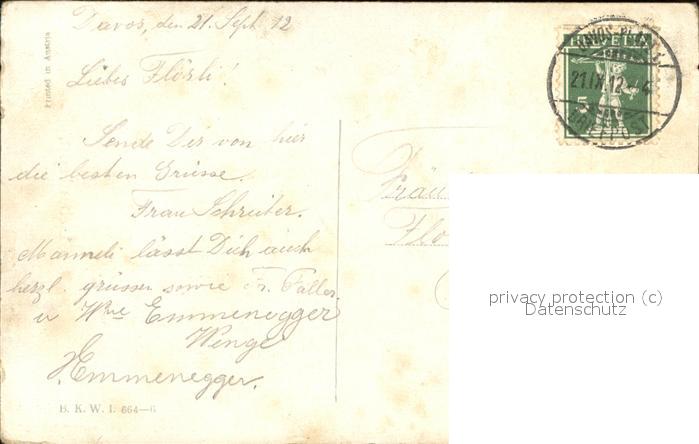 Davos, den 21. Sept. 12
Printed in Austria
Liebes Flörli!
Sende Dir von hier
die besten Grüsse.
Frau Schreiter.
Männeli lässt Dich auch
herzl. grüssen sowie Fr. Faller
u Wwe Emmenegger
Wenge
H. Emmenegger.
B. K. W. I. 664—6
HELVETIA
5
DAVOS-PLATZ
21.IX.12
BRIEFPOST
Fräu
Flo
privacy protection (c)
Datenschutz